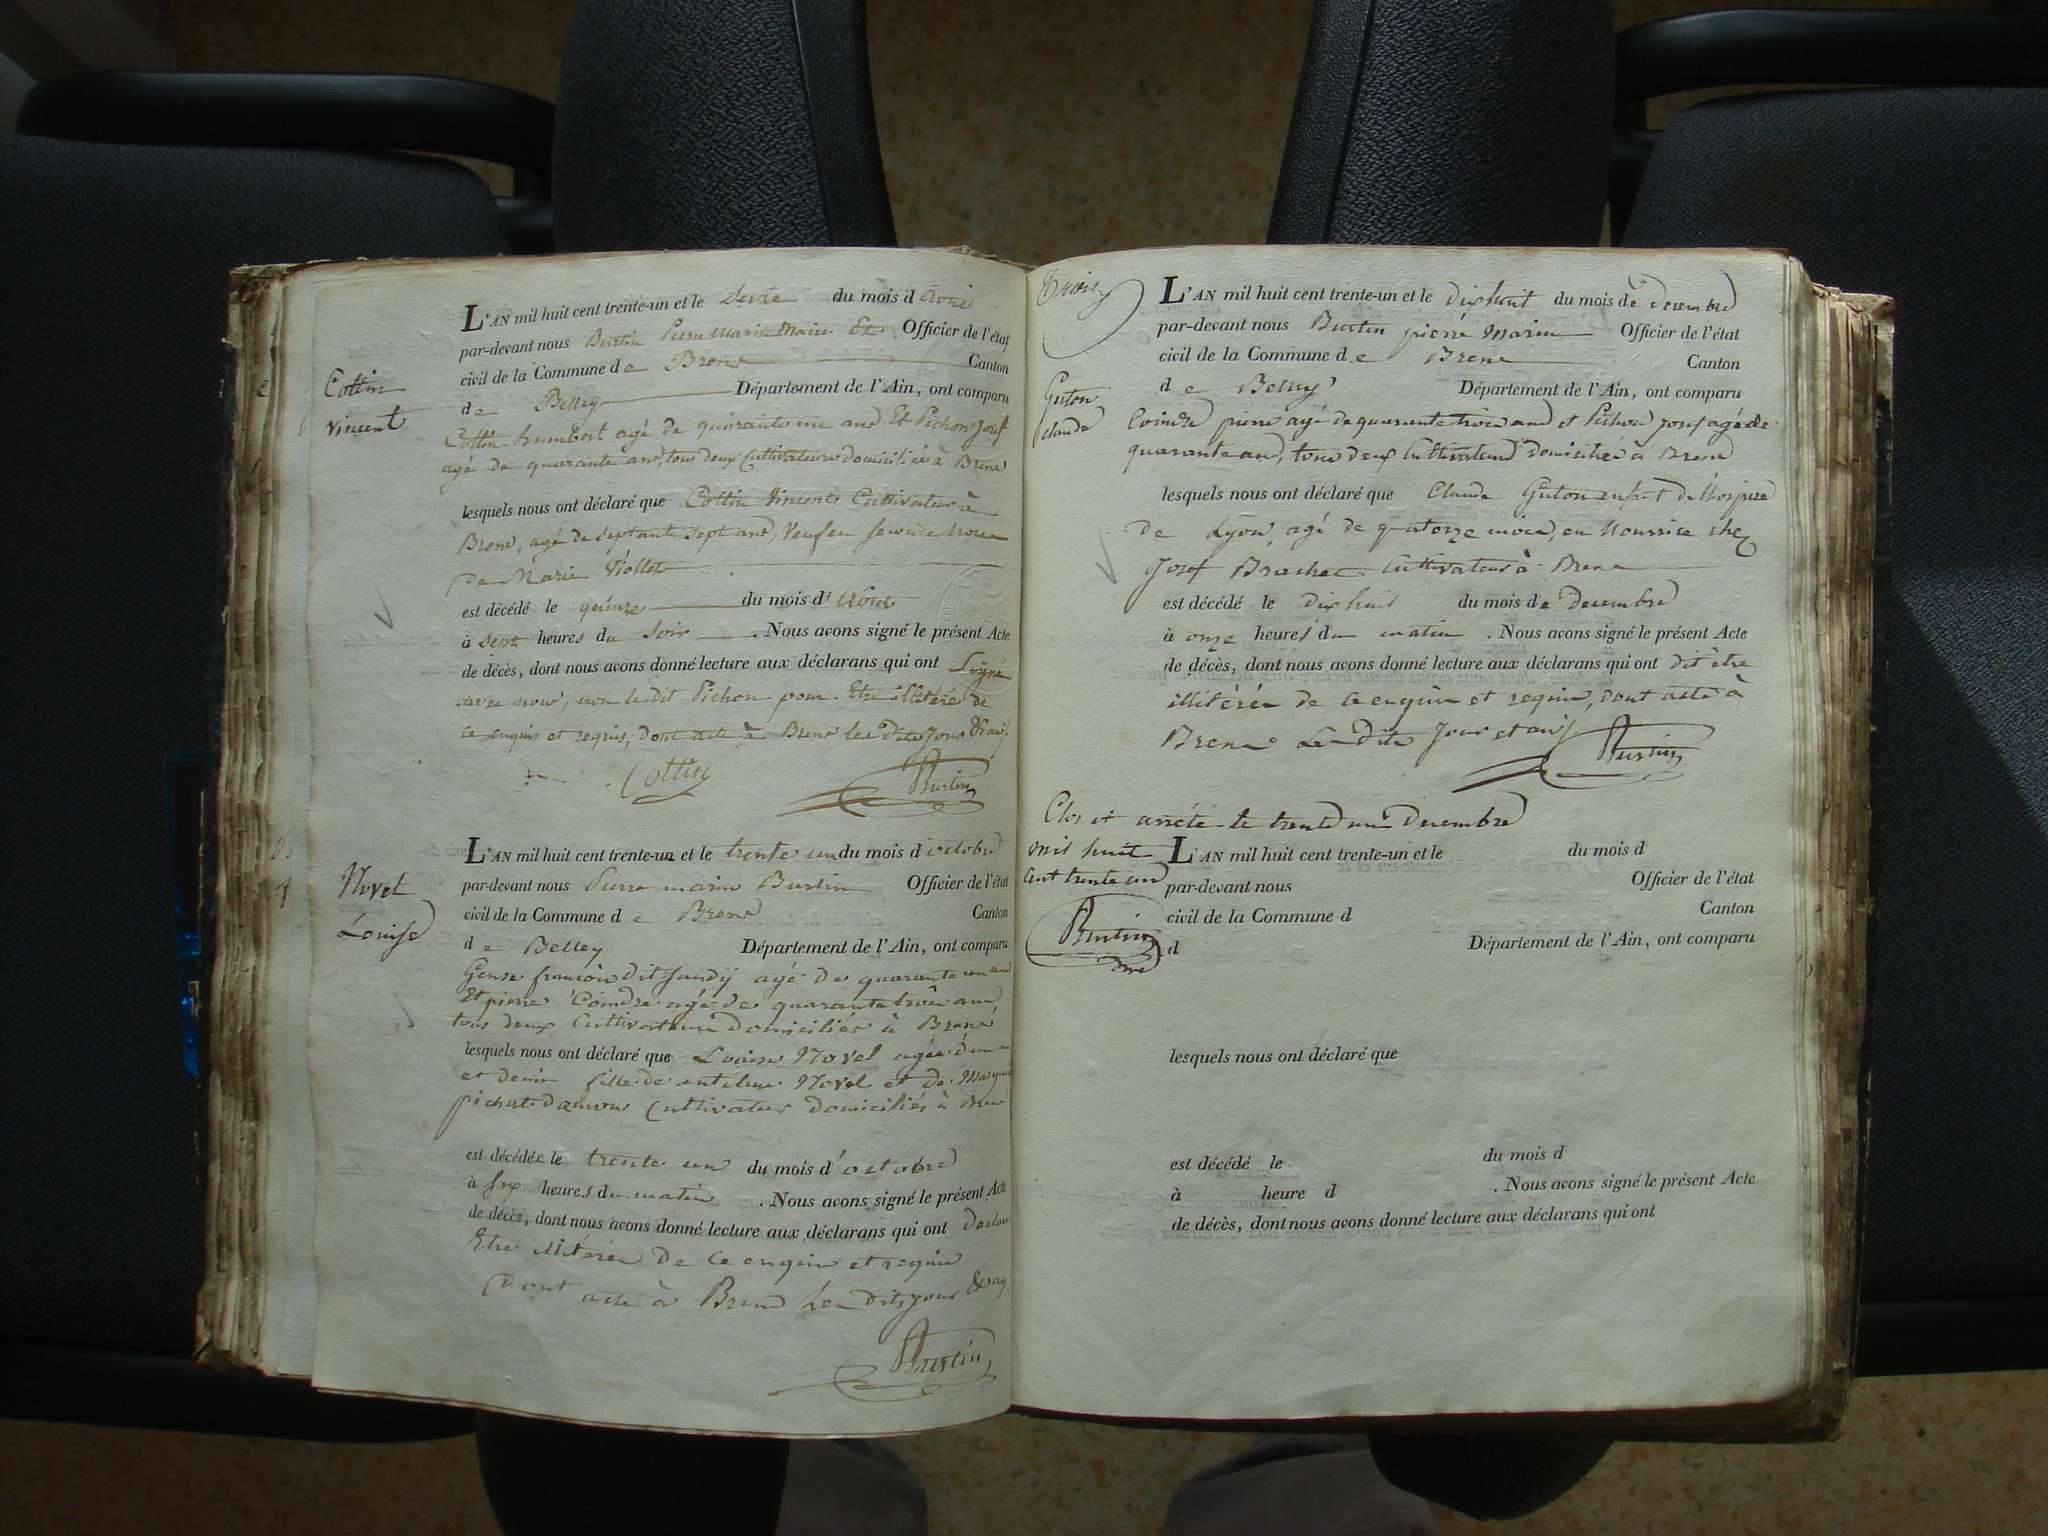 Cottin
Vincent
L'AN mil huit cent trente-un et le seize du mois d'
par-devant nous Burtin Pierre Marin Maire Et Officier de l'état
civil de la Commune de Brens Canton
de Belley Département de l'Ain, ont comparu
Cottin humbert agé de quarante un ans Et Pichon Josef
agé de quarante ans, tous deux Cultivateurs domiciliés à Brens
lesquels nous ont déclaré que Cottin Vincent Cultivateur à
Brens, agé de septante sept ans, Veuf en seconde
de Marie Viollet
est décédé le quinze du mois d'
à sept heures du soir. Nous avons signé le présent Acte
de décès, dont nous avons donné lecture aux déclarans qui ont signé
avec nous, non le dit Pichon pour Etre illitéré de
ce enquis et requis, dont acte à Brens les dits jour &
Cottin
Burtin
Novel
Louise
L'AN mil huit cent trente-un et le trente un du mois d'octobre
par-devant nous Pierre marin Burtin Officier de l'état
civil de la Commune de Brens Canton
de Belley Département de l'Ain, ont comparu
françois dit agé de quarante un ans
Et pierre Coindre agé de quarante trois ans
tous deux Cultivateurs domiciliés à Brens
lesquels nous ont déclaré que Louise Novel agée d'un an
et demi fille de antelme Novel et de
Cultivateurs domiciliés à Brens
est décédée le trente un du mois d'octobre
à six heures du matin. Nous avons signé le présent Acte
de décès, dont nous avons donné lecture aux déclarans qui ont
Etre illitérés de ce enquis et requis
Dont acte à Brens Les dits jour &
Burtin
Guton
claude
L'AN mil huit cent trente-un et le dix huit du mois de decembre
par-devant nous Burtin pierre Marin Officier de l'état
civil de la Commune de Brens Canton
de Belley Département de l'Ain, ont comparu
Coindre pierre agé de quarante trois ans et Pichon josef agé de
quarante ans, tous deux Cultivateurs domiciliés à Brens
lesquels nous ont déclaré que Claude Guton enfant de l'hospice
de Lyon, agé de quatorze mois, en Nourrice chez
Josef Brachet Cultivateur à Brens
est décédé le dix huit du mois de decembre
à onze heures du matin. Nous avons signé le présent Acte
de décès, dont nous avons donné lecture aux déclarans qui ont dit être
illitérés de ce enquis et requis, dont acte à
Brens Les dits jour et an
Burtin
Clos et arrété le trente un Decembre
mil huit
cent trente un
Burtin
L'AN mil huit cent trente-un et le du mois d
par-devant nous Officier de l'état
civil de la Commune d Canton
d Département de l'Ain, ont comparu
lesquels nous ont déclaré que
est décédé le du mois d
à heure d. Nous avons signé le présent Acte
de décès, dont nous avons donné lecture aux déclarans qui ont